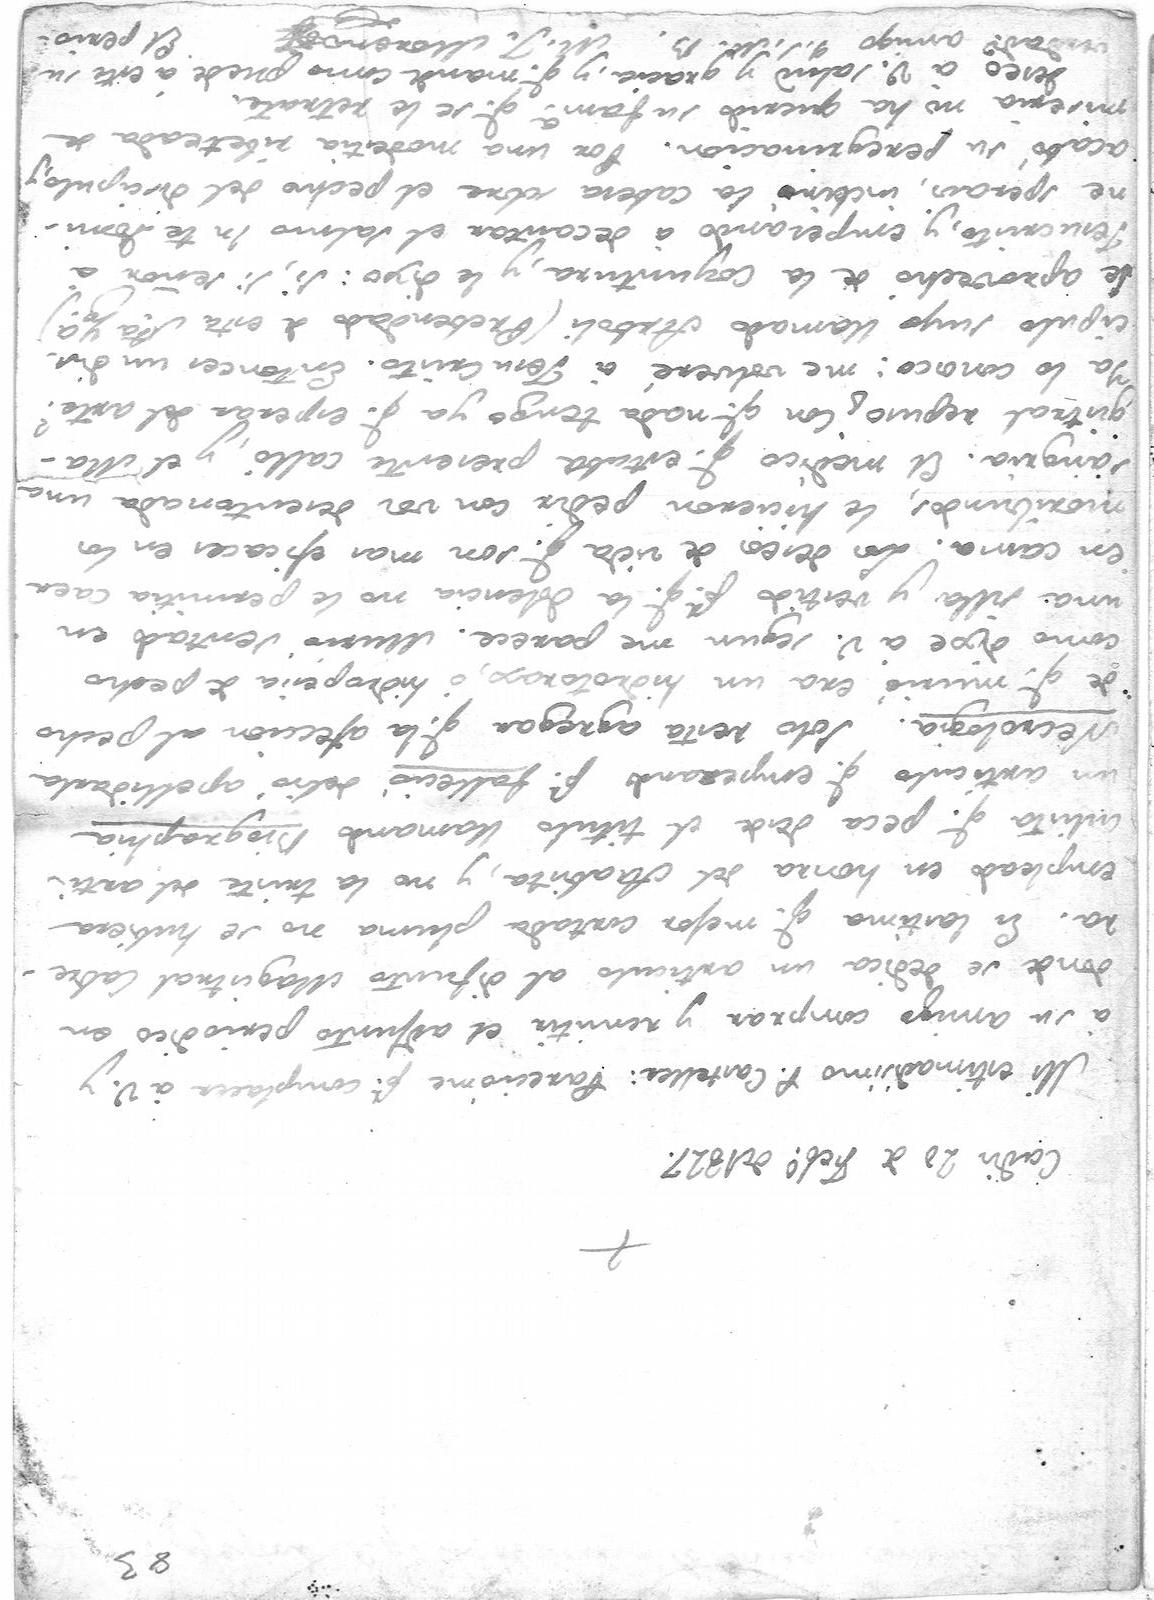 83
+
Cadiz 20 de Feb.º de 1827.
Mi estimadisimo P. Cartellez: Pareciome p.ª complacer à V. y
à su amigo comprar y remitir el adjunto periodico en
donde se dedica un articulo al difunto Magistral Cabre-
ra. Es lastima q.e mejor cortada pluma no se hubiera
empleado en honra del Arabista, y no la triste del arti-
culista q.e peca desde el titulo llamando Biographia
un articulo q.e empezando p.r falleció debió apellidarla
Necrologia. Solo resta agregar q.e la afeccion al pecho
de q.e murió era un hidrotorax, ó hidropesia de pecho
como dixe a V. segun me parece. Murió sentado en
una silla y vestido p.r q.e la dolencia no le permitia caer
en cama. Los deseos de vida q.e son mas eficaces en los
moribundos, le hicieron pedir con voz desentonada una
sangria. El medico q.e estaba presente calló, y el Ma-
gistral repuso ¿con q.e nada tengo ya q.e esperar del arte?
Ya lo conozco: me volveré à Jesu Cristo. Entonces un dis-
cipulo suyo llamado Arboli (Prebendado de esta Sta Yg.a)
se aprovechó de la coyuntura, y le dixo: Si, Si señor à
Jesucristo, y empezando à decantar el salmo In te Domi-
ne speravi, inclinó la cabeza sobre el pecho del discipulo, y
acabó su peregrinacion. Por una modestia ribeteada de
miseria ni ha querido su fam.a q.e se le retrate.
Deseo a V. salud y gracia, y q.e mande como puede à este su
verdad.º amigo q.s.m.b. M. J. Moreno El perio-